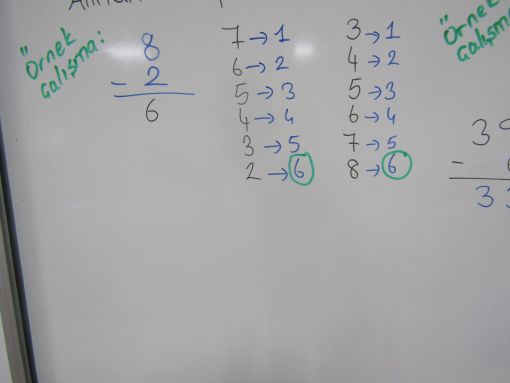 Örnek
çalışma:
8
- 2
6
7 → 1
6 → 2
5 → 3
4 → 4
3 → 5
2 → 6
3 → 1
4 → 2
5 → 3
6 → 4
7 → 5
8 → 6
Örnek